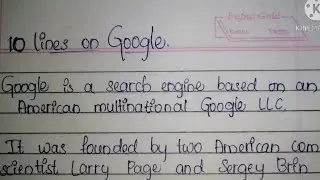 10 lines on Google.
Google is a search engine based on an
American multinational Google LLC.
It was founded by two American com
scientist Larry Page and Sergey Brin